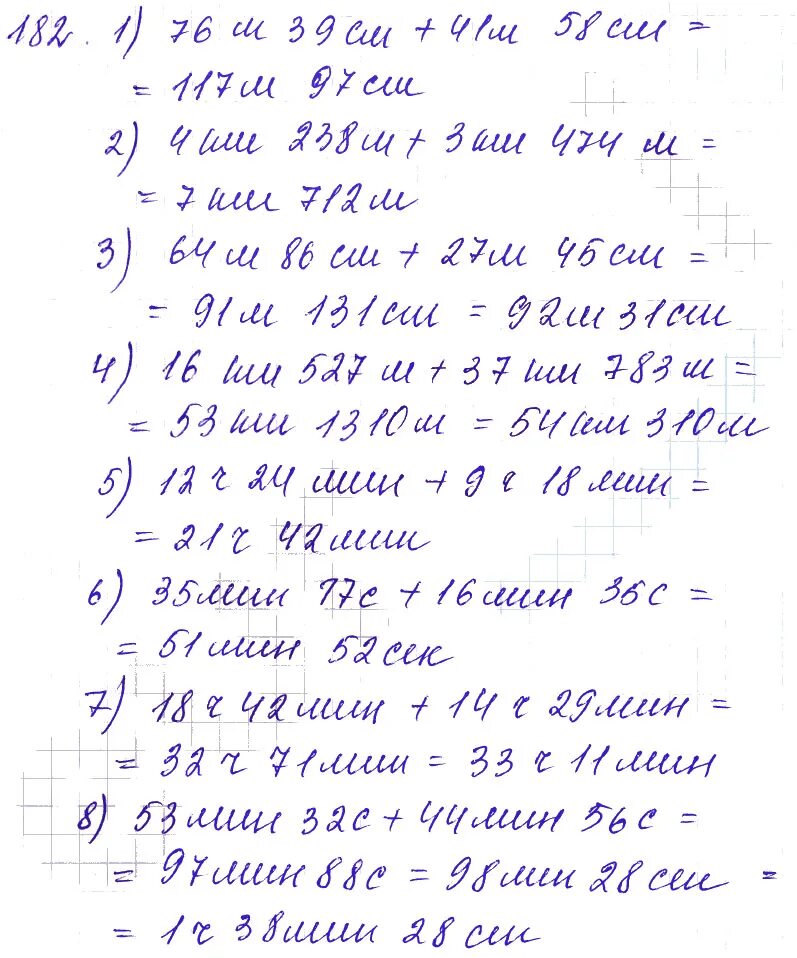 182. 1) 76 м 39 см + 41 м 58 см =
= 117 м 97 см
2) 4 км 238 м + 3 км 474 м =
= 7 км 712 м
3) 64 м 86 см + 27 м 45 см =
= 91 м 131 см = 92 м 31 см
4) 16 км 527 м + 37 км 783 м =
= 53 км 1310 м = 54 км 310 м
5) 12 ч 24 мин + 9 ч 18 мин =
= 21 ч 42 мин
6) 35 мин 17 с + 16 мин 35 с =
= 51 мин 52 сек
7) 18 ч 42 мин + 14 ч 29 мин =
= 32 ч 71 мин = 33 ч 11 мин
8) 53 мин 32 с + 44 мин 56 с =
= 97 мин 88 с = 98 мин 28 сек =
= 1 ч 38 мин 28 сек